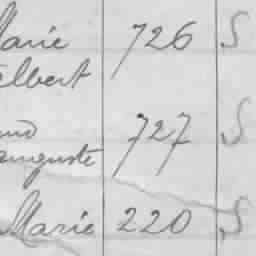 Marie 726 S
Albert
727 S
Auguste
Marie 220 S